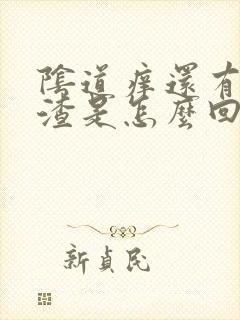 陰道痒還有
渣是怎麼回
新貞民